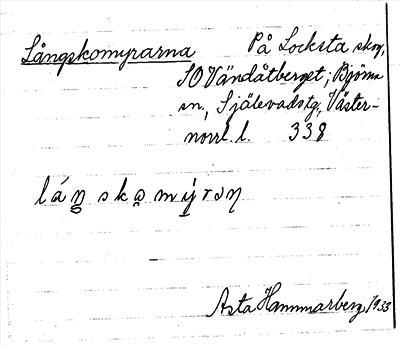 Långskomyrarna På Locksta skog,
SO Vändåtberget; Björna
sn., Själevads tg, Väster-
norrl. l. 338
lán̥skomýrən
Asta Hammarberg 1933